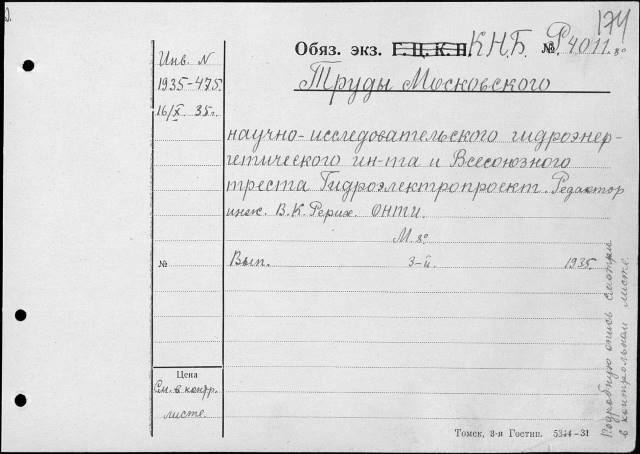 174
Обяз. экз. Г. Ц. К. П. К.Н.Б. № Р4011.8°
Инв. N
1935-475.
16/X 35г.
Труды Московского
научно-исследовательского гидроэнер-
гетического ин-та и Всесоюзного
треста Гидроэлектропроект. Редактор
инж. В.К. Рерих. ОНТИ.
М. 8°
№ Вып. 3-й 1935.
Цена
См. в контр.
листе.
Подробную опись смотри
в контрольном листе.
Томск, 3-я Гостип. 5344-31